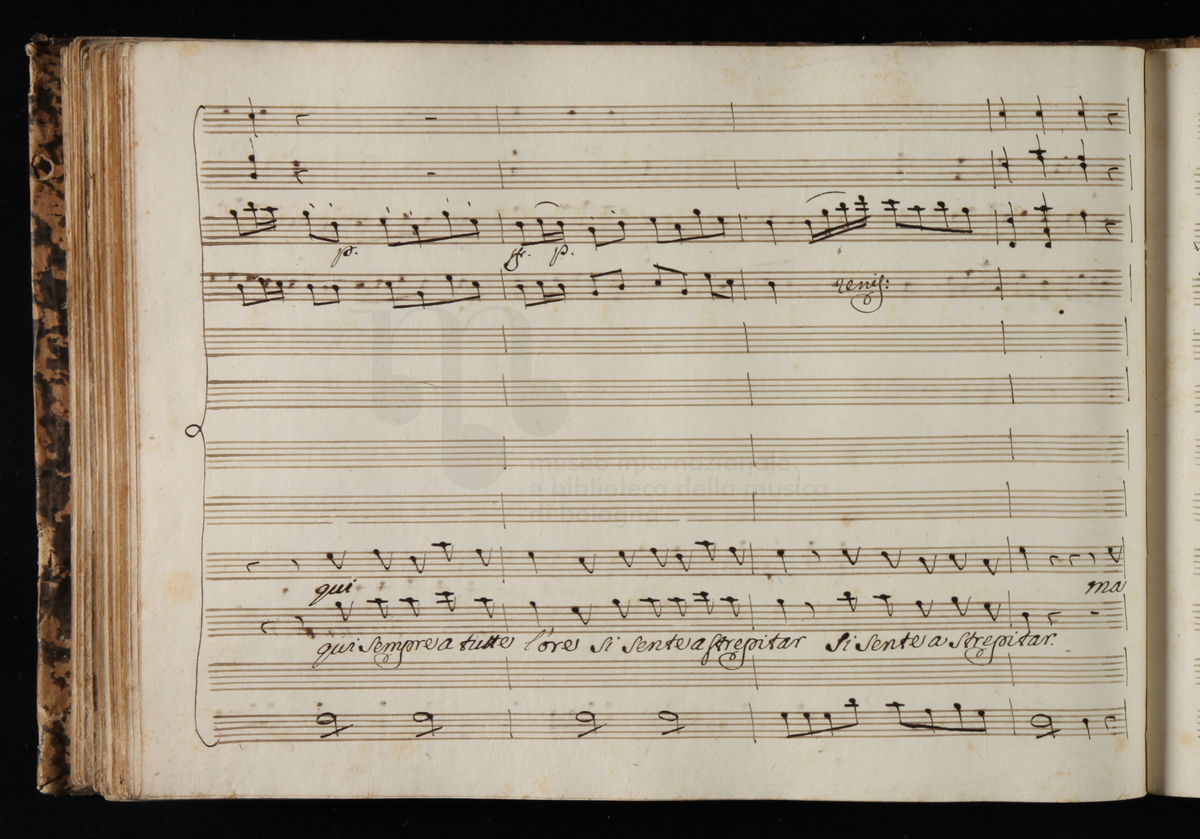 p. f. p.
unis:
museo internazionale
e biblioteca della musica
di bologna
qui ma
qui sempre a tutte l'ore si sente a strepitar si sente a strepitar.